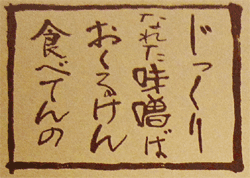 じっくり
なれた味噌ば
おくるけん
食べてんの